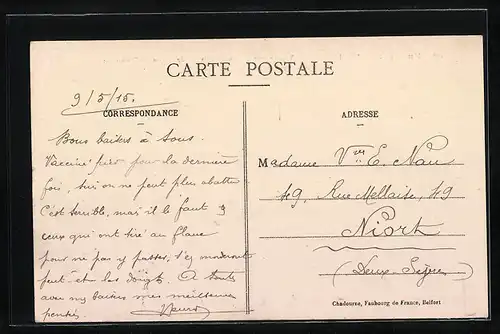 CARTE POSTALE
9/5/15.
CORRESPONDANCE
ADRESSE
Bons baisers à tous.
Vacciné pour la dernière
fois, on ne peut plus abattu
C'est terrible, mais il le faut
ceux qui ont tiré au flanc
pour ne pas y passer, s'en
et les doigts. A tous
avec mes baisers mes meilleures
pensées
Madame Vve E. Nau
49, Rue Mellaise, 49
Niort
(Deux-Sèvres)
Chadourne, Faubourg de France, Belfort